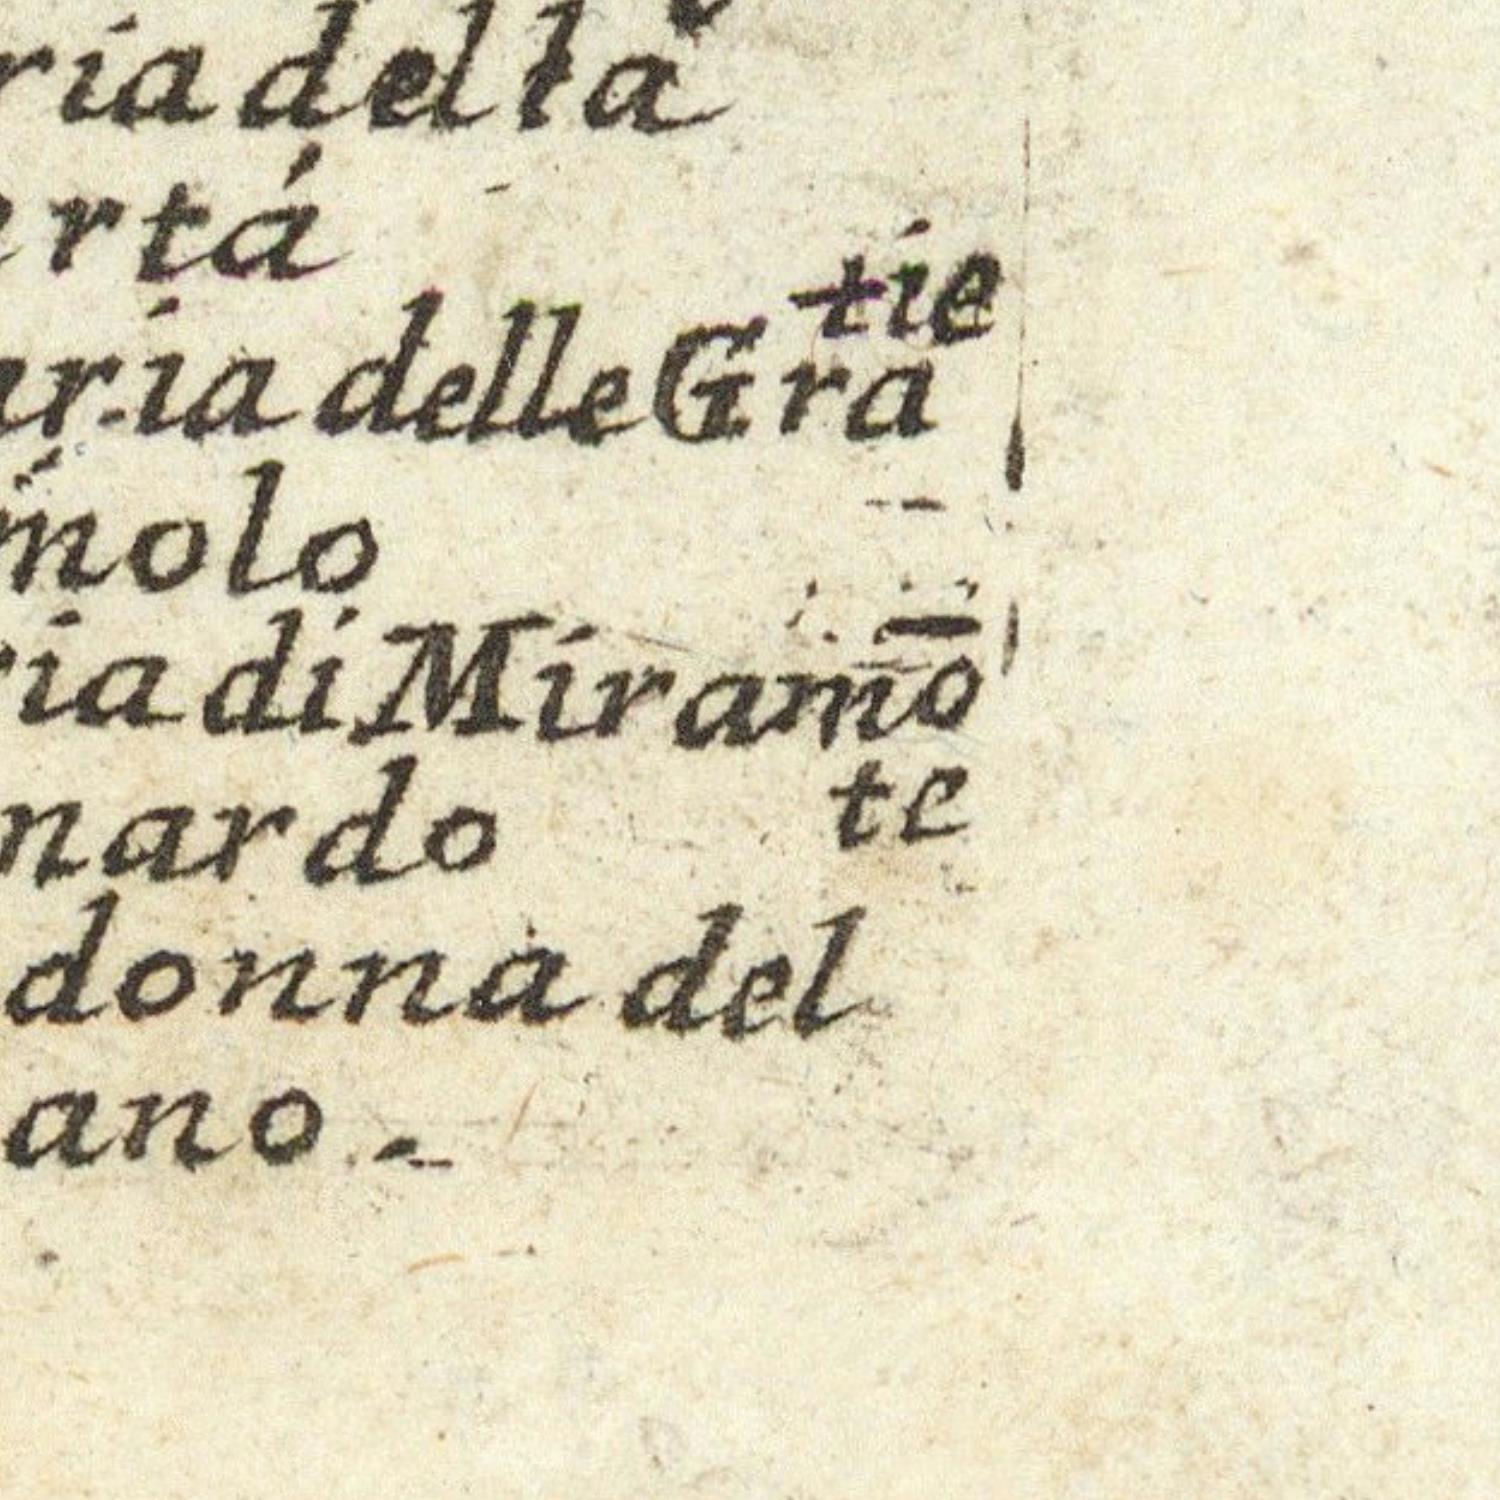 ria della
ertá
aria delle Gra
tie
molo
ria di Miramō
te
nardo
donna del
ano.